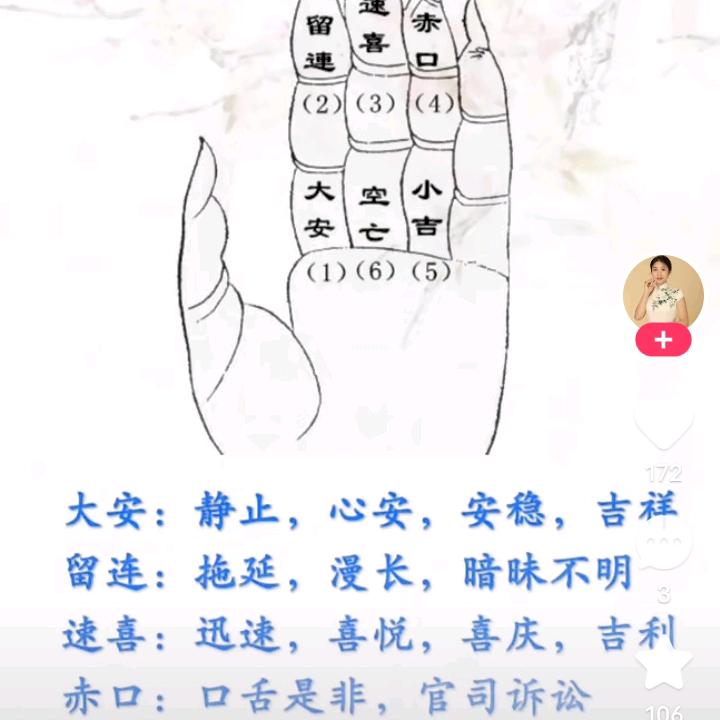 留 速 赤
連 喜 口
(2) (3) (4)
大 空 小
安 亡 吉
(1) (6) (5)
172
大安：静止，心安，安稳，吉祥
留连：拖延，漫长，暗昧不明
3
速喜：迅速，喜悦，喜庆，吉利
赤口：口舌是非，官司诉讼
106